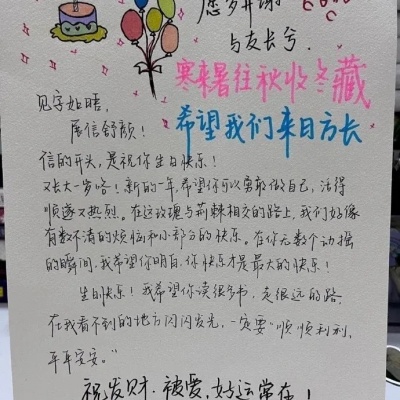 愿岁并谢
与友长兮.
寒来暑往秋收冬藏
希望我们来日方长
见字如晤,
展信舒颜!
信的开头,是祝你生日快乐!
又长大一岁咯!新的一年,希望你可以勇敢做自己,活得
顺遂又热烈。在这玫瑰与荆棘相交的路上,我们好像
有数不清的烦恼和小部分的快乐。在你无数个动摇
的瞬间,我希望你明白,你快乐才是最大的快乐!
生日快乐!我希望你读很多书,走很远的路.
在我看不到的地方闪闪发光,一定要“顺顺利利,
平平安安。”
祝发财、被爱,好运常在!